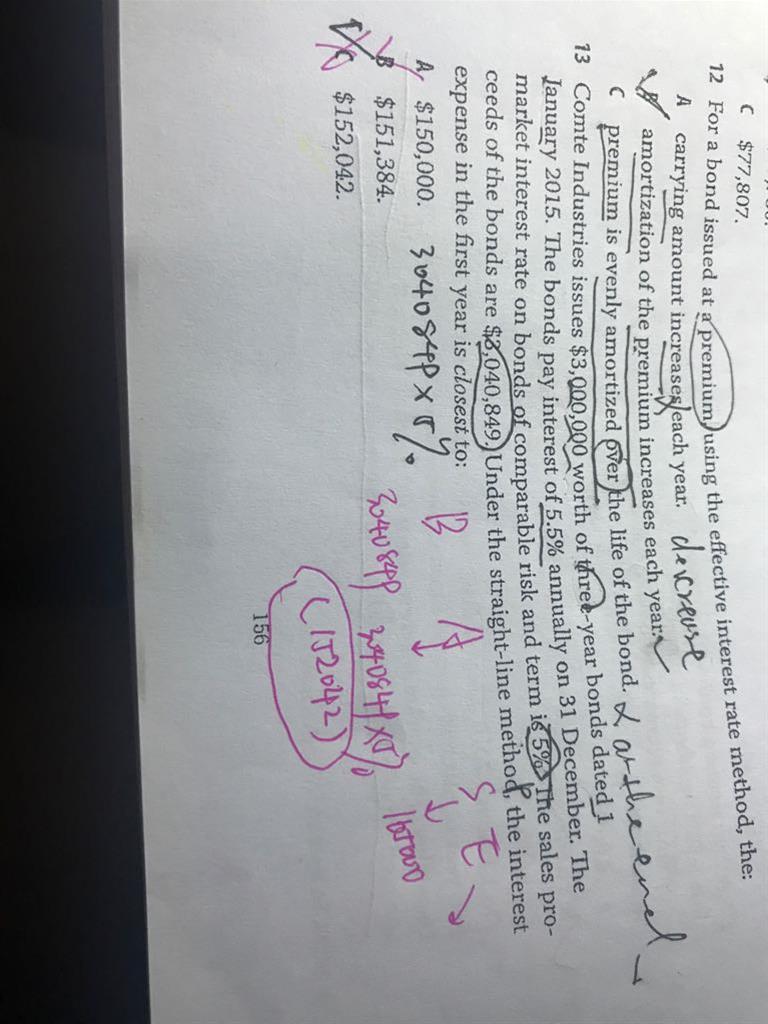 C $77,807.
12 For a bond issued at a premium, using the effective interest rate method, the:
A carrying amount increases each year. decrease
amortization of the premium increases each year.
C premium is evenly amortized over the life of the bond.
13 Comte Industries issues $3,000,000 worth of three-year bonds dated 1
January 2015. The bonds pay interest of 5.5% annually on 31 December. The
market interest rate on bonds of comparable risk and term is 5%. The sales pro-
ceeds of the bonds are $3,040,849. Under the straight-line method, the interest
expense in the first year is closest to:
A $150,000. 3040849 × 5%
B $151,384.
C $152,042.
B A S E
3040849 3040849 × 5% 165000
(152042)
156